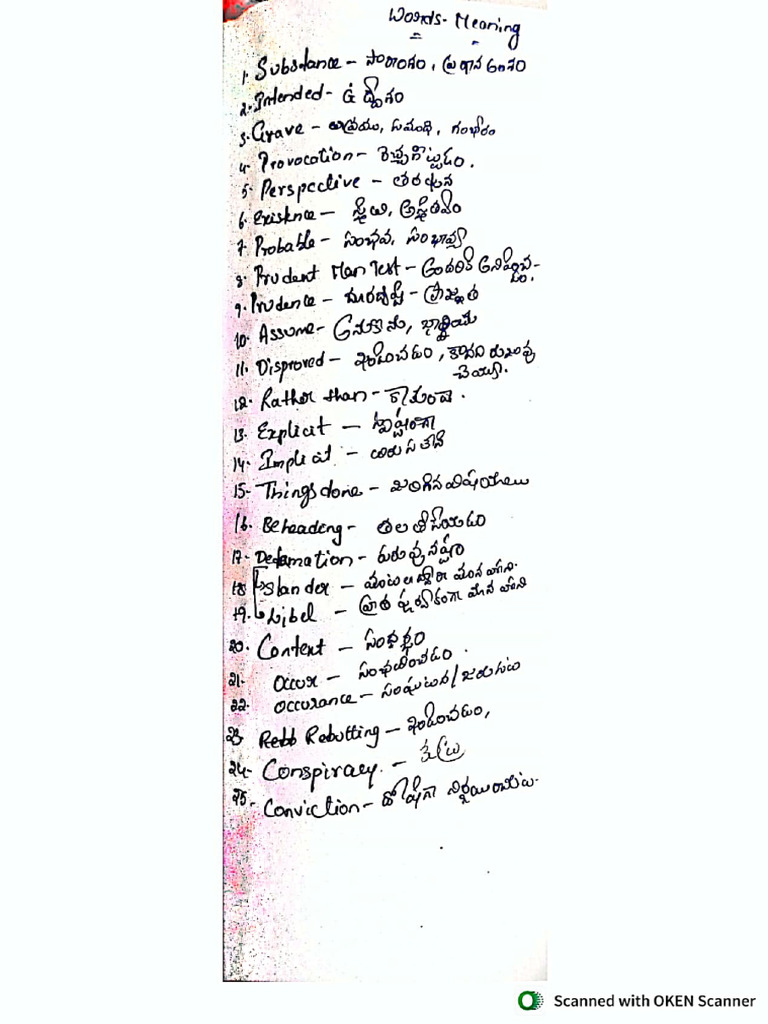 Words - Meaning
1. Substance - సారాంశం, ప్రధాన అంశం
2. Intended - ఉద్దేశం
3. Grave - సమాధి, గంభీరం
4. Provocation - రెచ్చగొట్టుడం.
5. Perspective -
6. Existnce - స్థితి, అస్థిత్వం
7. Probable - సంభవ, సంభావ్య
8. Prudent Man Test - అందరికి అనిపించు-
డం.
9. Prudence - దూరదృష్టి - ప్రాజ్ఞత
10. Assume - అనుకొను,
11. Disproved - ఖండించడం, కాదని రుజువు
చెయ్యు.
12. Rather than - కాకుండా.
13. Explicit - స్పష్టంగా
14. Implicit -
15- Things done - జరిగిన విషయాలు
16. Beheading - తల తీసేయడం
17. Defamation - పరువు నష్టం
18 Slander - మాటల ద్వారా మాన హాని
19. Libel - వ్రాత పూర్వకంగా మాన హాని
20. Context - సందర్భం
21. Occur - సంభవించడం.
22. Occurance - సంఘటన / జరుగుట
23 Rebutting - ఖండించడం,
24- Conspiracy - కుట్ర
25- Conviction - దోషిగా నిర్ణయించుట.
Scanned with OKEN Scanner